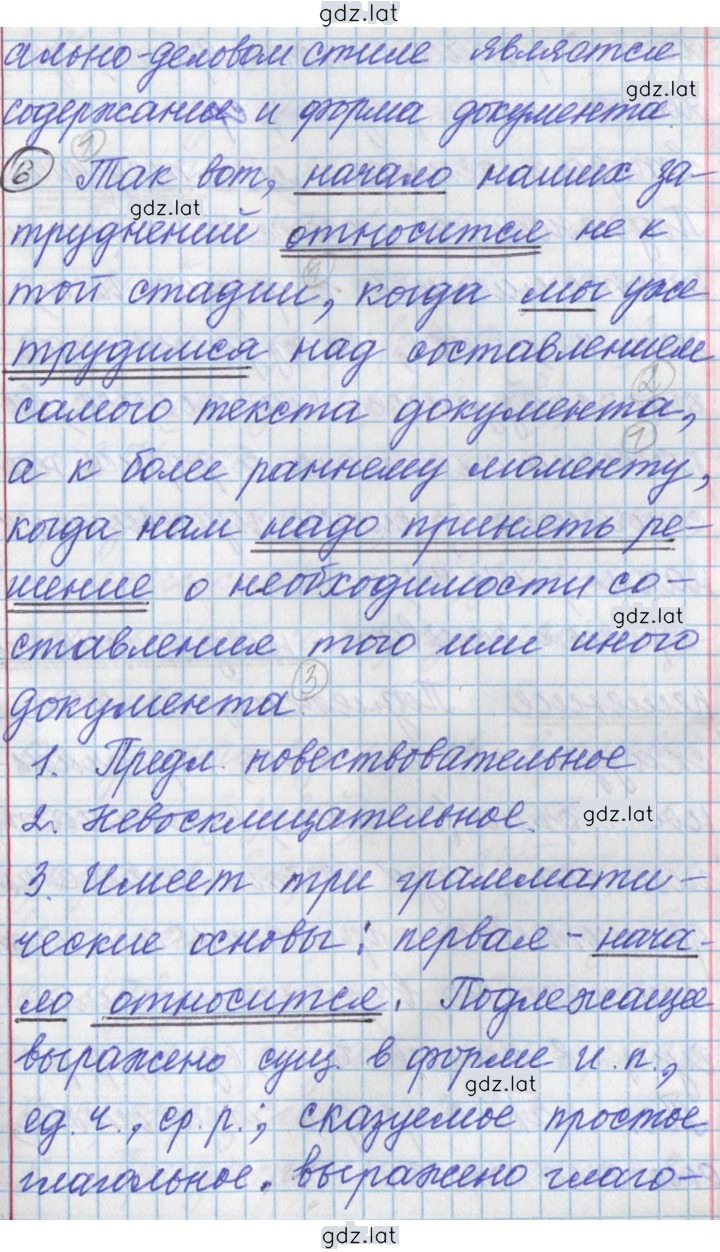 gdz.lat
ально-деловом стиле является
gdz.lat
содержание и форма документа.
6 1 Так вот, начало наших за-
gdz.lat
труднений относится не к
2
той стадии, когда мы уже
трудимся над составлением
2
самого текста документа,
1
а к более раннему моменту,
когда нам надо принять ре-
шение о необходимости со-
gdz.lat
ставления того или иного
3
документа.
1. Предл. повествовательное
2. Невосклицательное.
gdz.lat
3. Имеет три граммати-
ческие основы: первая - нача-
ло относится. Подлежащее
выражено сущ. в форме и.п.,
gdz.lat
ед.ч., ср.р.; сказуемое простое
глагольное, выражено глаго-
gdz.lat